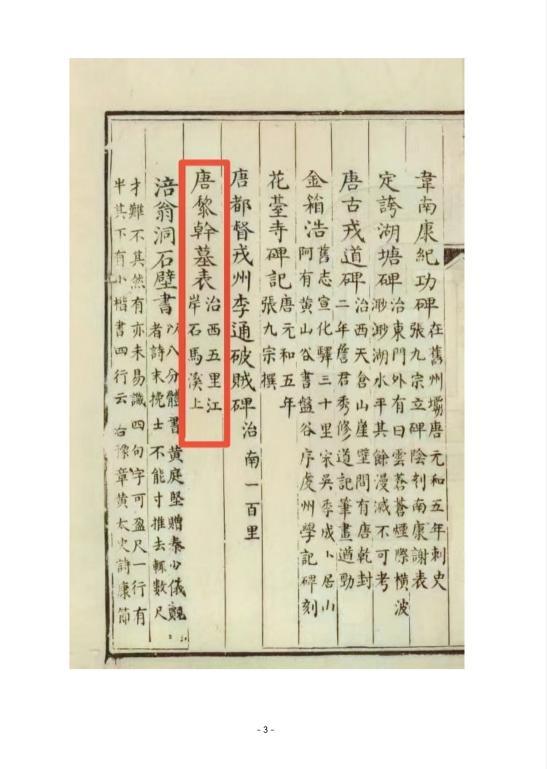 韋南康紀功碑在舊州壩唐元和五年刺史
張九宗立碑陰刻南康謝表
定誇湖塘碑治東門外有曰雲蒼蒼煙際橫波
渺渺湖水平其餘漫滅不可考
唐古戎道碑治西天倉山崖壁間有唐乾封
二年詹君秀修道記筆畫遒勁
金箱浩舊志宣化驛三十里宋吳季成卜居山
阿有黃山谷書盤谷序虔州學記碑刻
花臺寺碑記唐元和五年
張九宗撰
唐都督戎州李通破賊碑治南一百里
唐黎幹墓表治西五里江
岸石馬溪上
涪翁洞石壁書以八分體書黃庭堅贈秦少儀
者詩末挽士不能寸推去輒數尺
才難不其然有亦未易識四句字可盈尺一行有
半其下有小楷書四行云右豫章黃太史詩康節
- 3 -